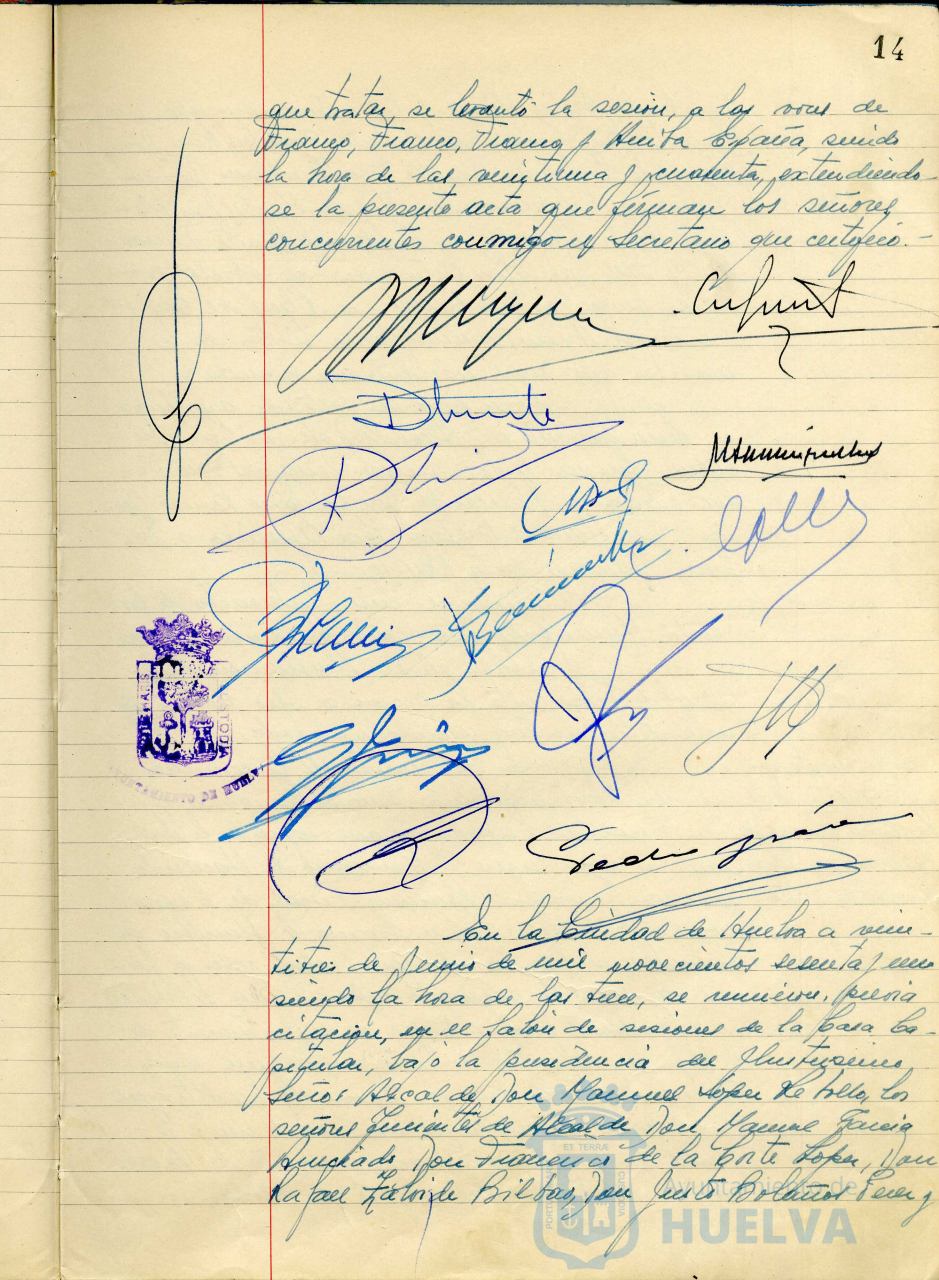 14
que tratar, se levantó la sesión, a las voces de
Franco, Franco, Franco y Arriba España, siendo
la hora de las veintiuna y cuarenta, extendiendo-
se la presente acta que firman los señores
concurrentes conmigo el Secretario que certifico.-
Duarte
Pedro
AYUNTAMIENTO DE HUELVA
En la Ciudad de Huelva a vein-
titres de Junio de mil novecientos sesenta y uno
siendo la hora de las trece, se reunieron, previa
citación, en el Salón de sesiones de la Casa Ca-
pitular, bajo la presidencia del Ilustrísimo
Señor Alcalde, Don Manuel López Rebollo, los
señores Tenientes de Alcalde, Don Manuel García
Don Francisco de la Corte López, Don
Rafael Zalvide Bilbao, Don Justo Bolaños Perez y
Ayuntamiento de
HUELVA